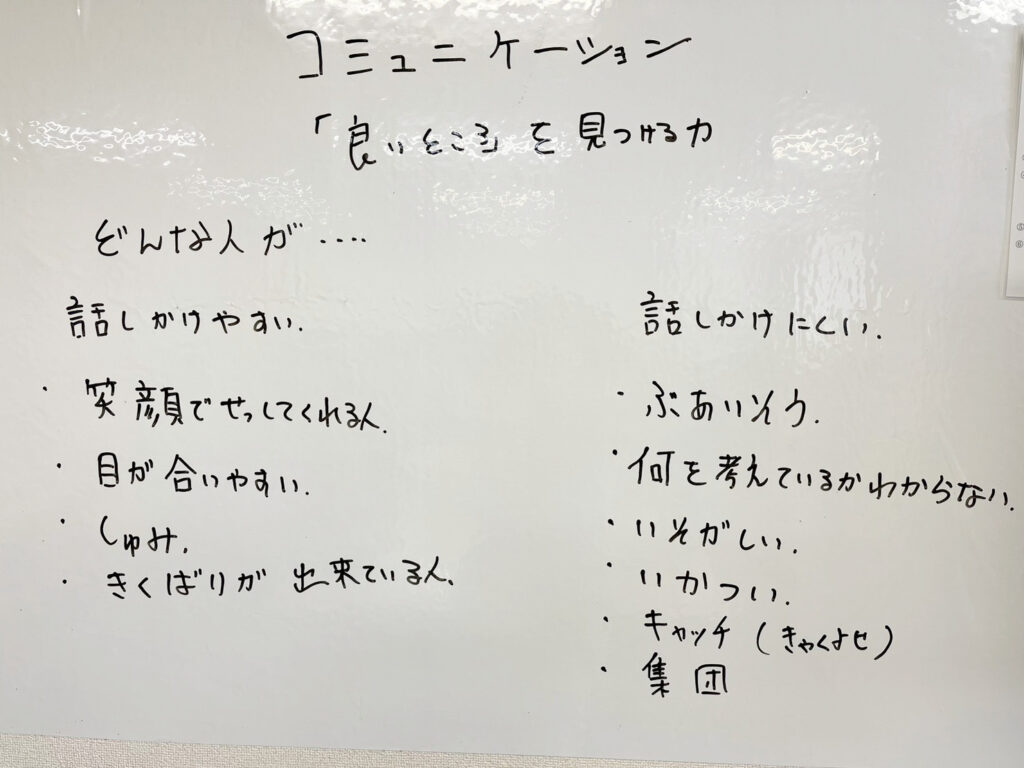 コミュニケーション
「良いところ」を見つける力
どんな人が‥‥
話しかけやすい.
・笑顔でせっしてくれる人.
・目が合いやすい.
・しゅみ.
・きくばりが出来ている人.
話しかけにくい.
・ぶあいそう.
・何を考えているかわからない.
・いそがしい.
・いかつい.
・キャッチ(きゃくよせ)
・集団